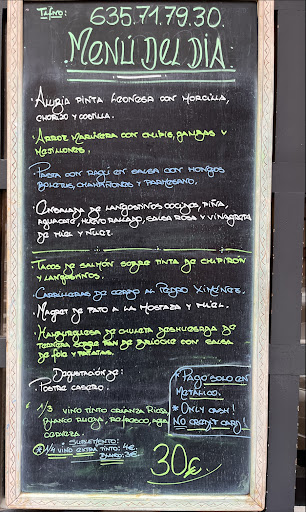 Tlfno: 635.71.79.30.
MENÚ DEL DIA
· ALUBIA PINTA LEONESA CON MORCILLA,
CHORIZO Y COSTILLA.
· ARROZ MARINERA CON CHIPIS, GAMBAS Y
MEJILLONES.
· PASTA CON RAGÚ EN SALSA CON HONGOS
BOLETUS, CHAMPIÑONES Y PARMESANO.
· ENSALADA DE LANGOSTINOS COCIDOS, PIÑA,
AGUACATE, HUEVO RALLADO, SALSA ROSA Y VINAGRETA
DE MIEL Y NUEZ.
· TACOS DE SALMÓN SOBRE TINTA DE CHIPIRÓN
Y LANGOSTINOS.
· CARRILLERAS DE CERDO AL PEDRO XIMÉNEZ.
· MAGRET DE PATO A LA MOSTAZA Y MIEL.
· HAMBURGUESA DE CHULETA DESHUESADA DE
TERNERA SOBRE PAN DE BRIOCHE CON SALSA
DE FOIE Y PATATAS.
· DEGUSTACIÓN DE:
POSTRE CASERO.
* PAGO SOLO EN
METALICO.
* ONLY CASH!
NO CREDIT CARD!
* 1/3 VINO TINTO CRIANZA RIOJA,
BLANCO RUEDA, REFRESCO, AGUA,
CERVEZA.
· SUPLEMENTO:
* 1/4 VINO EXTRA TINTO: 4€.
BLANCO: 3€
30€